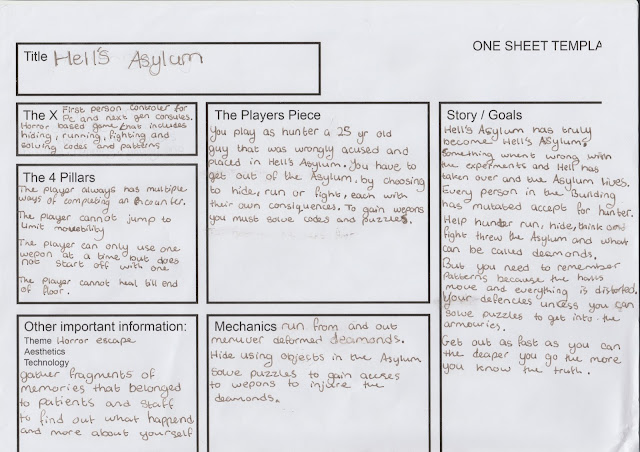 ONE SHEET TEMPLA
Title Hell's Asylum
The X First person controler for
Pc and next gen consules.
Horror based game that includes
hiding, running, fighting and
solving codes and patterns
The 4 Pillars
The player always has multiple
ways of completing an encounter.
The player cannot jump to
limit moveability
The player can only use one
wepon at a time but does
not start off with one
The player cannot heal till end
of floor.
Other important information:
Theme Horror escape
Aesthetics
Technology
gather fragments of
memories that belonged
to patients and staff
to find out what happend
and more about yourself
The Players Piece
You play as hunter a 25 yr old
guy that was wrongly acused and
placed in Hell's Asylum. You have to
get out of the Asylum, by choosing
to hide, run or fight, each with
their own consiquences. To gain wepons
you must solve codes and puzzles.
Mechanics run from and out
menuver deformed deamonds.
Hide using objects in the Asylum
Solve puzzles to gain access
to wepons to injure the
deamonds.
Story / Goals
Hell's Asylum has truly
become Hell's Asylum,
something whent wrong with
the experiments and Hell has
taken over and the Asylum lives.
Every person in the Building
has mutated accept for hunter.
Help hunter run, hide, think and
fight threw the Asylum and what
can be called deamonds.
But you need to remember
Patterns because the halls
move and everything is distorted.
Your defencies unless you can
solve puzzles to get into the
armouries.
Get out as fast as you can
the deaper you go the more
you know the truth.